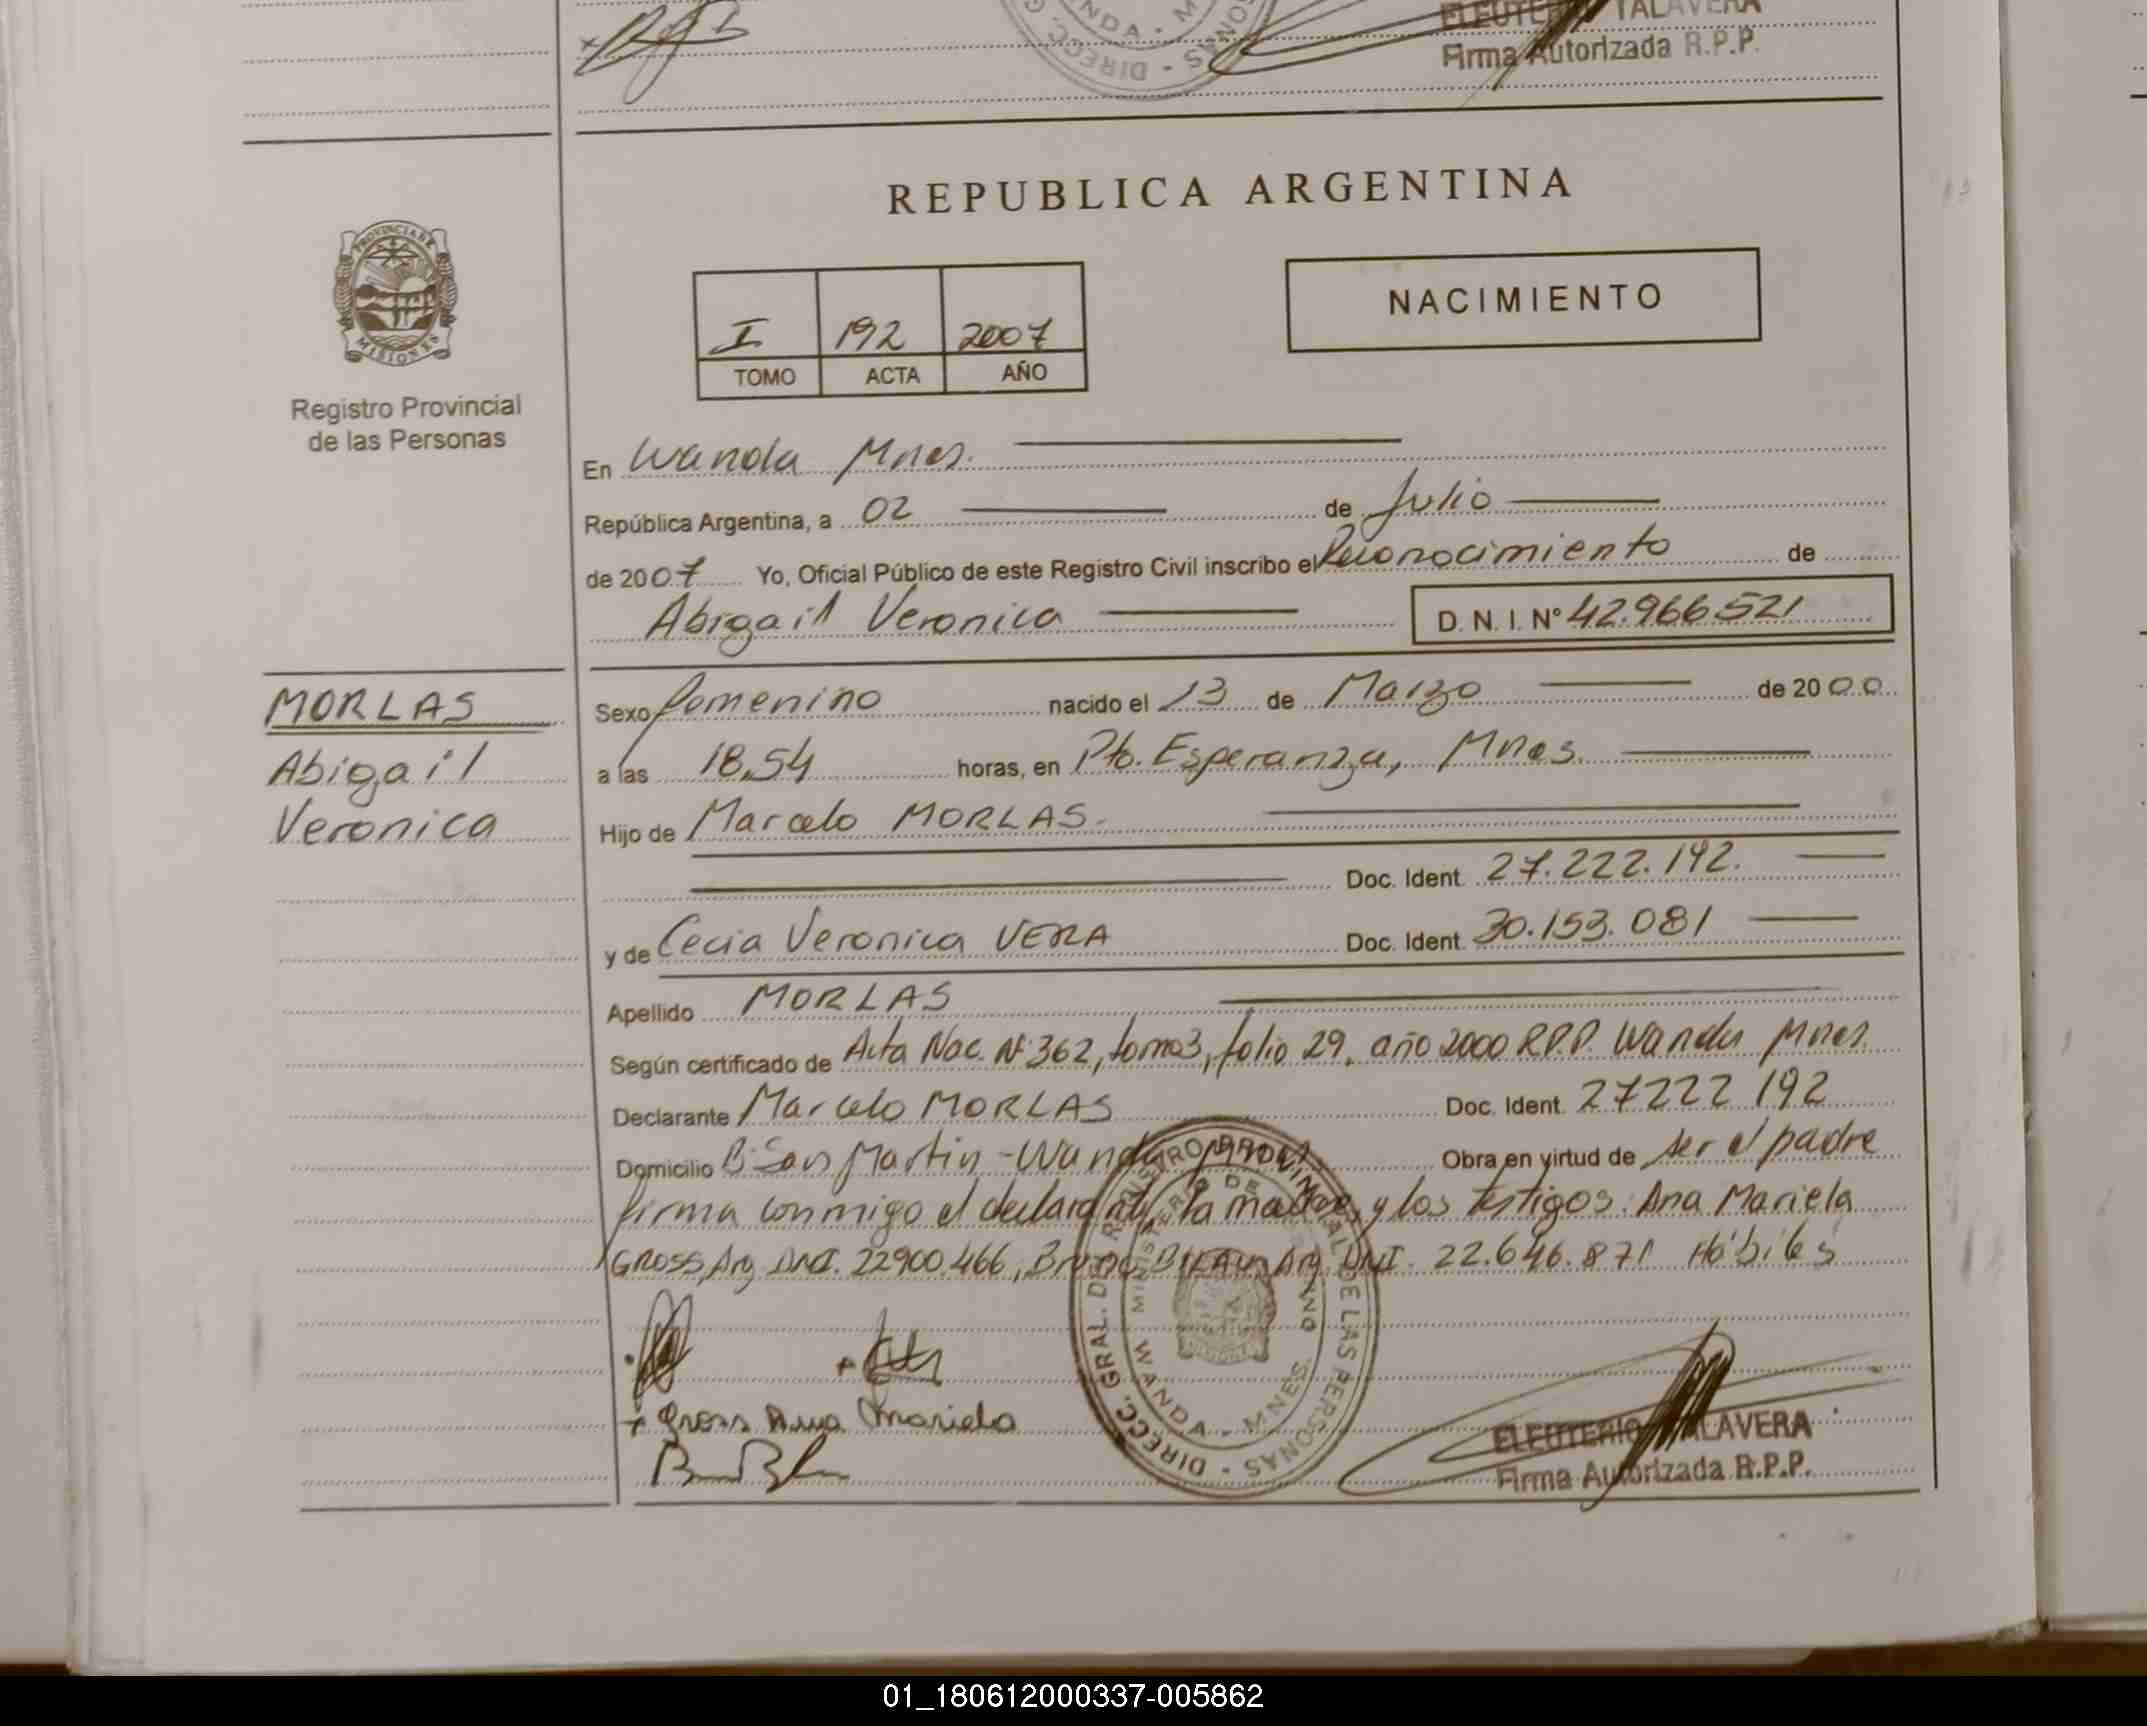 ELEUTERIO TALAVERA
Firma Autorizada R.P.P.
REPUBLICA ARGENTINA
PROVINCIA DE
MISIONES
Registro Provincial
de las Personas
I 192 2007
TOMO ACTA AÑO
NACIMIENTO
En Wanda Mnes.
República Argentina, a 02 de Julio
de 2007 Yo, Oficial Público de este Registro Civil inscribo el Reconocimiento de
Abigail Veronica D. N. I. Nº 42.966.521
MORLAS
Abigail
Veronica
Sexo femenino nacido el 13 de Marzo de 2000
a las 18,54 horas, en Pto. Esperanza, Mnes.
Hijo de Marcelo MORLAS.
Doc. Ident. 27.222.192.
y de Cecia Veronica VERA Doc. Ident. 30.153.081
Apellido MORLAS
Según certificado de Acta Nac. Nº 362, tomo 3, folio 29, año 2000 R.P.P. Wanda Mnes.
Declarante Marcelo MORLAS Doc. Ident. 27222 192
Domicilio Bº San Martin - Wanda Mnes. Obra en virtud de ser el padre
firma conmigo el declarante, la madre, y los testigos: Ana Mariela
GROSS, Arg. DNI. 22900.466, Bruno Arg. DNI. 22.646.871 Hábiles
DIRECC. GRAL. DE REGISTRO PROVINCIAL DE LAS PERSONAS
MINISTERIO DE
WANDA - MNES.
+ Gross Ana Mariela
ELEUTERIO TALAVERA
Firma Autorizada R.P.P.
01_180612000337-005862